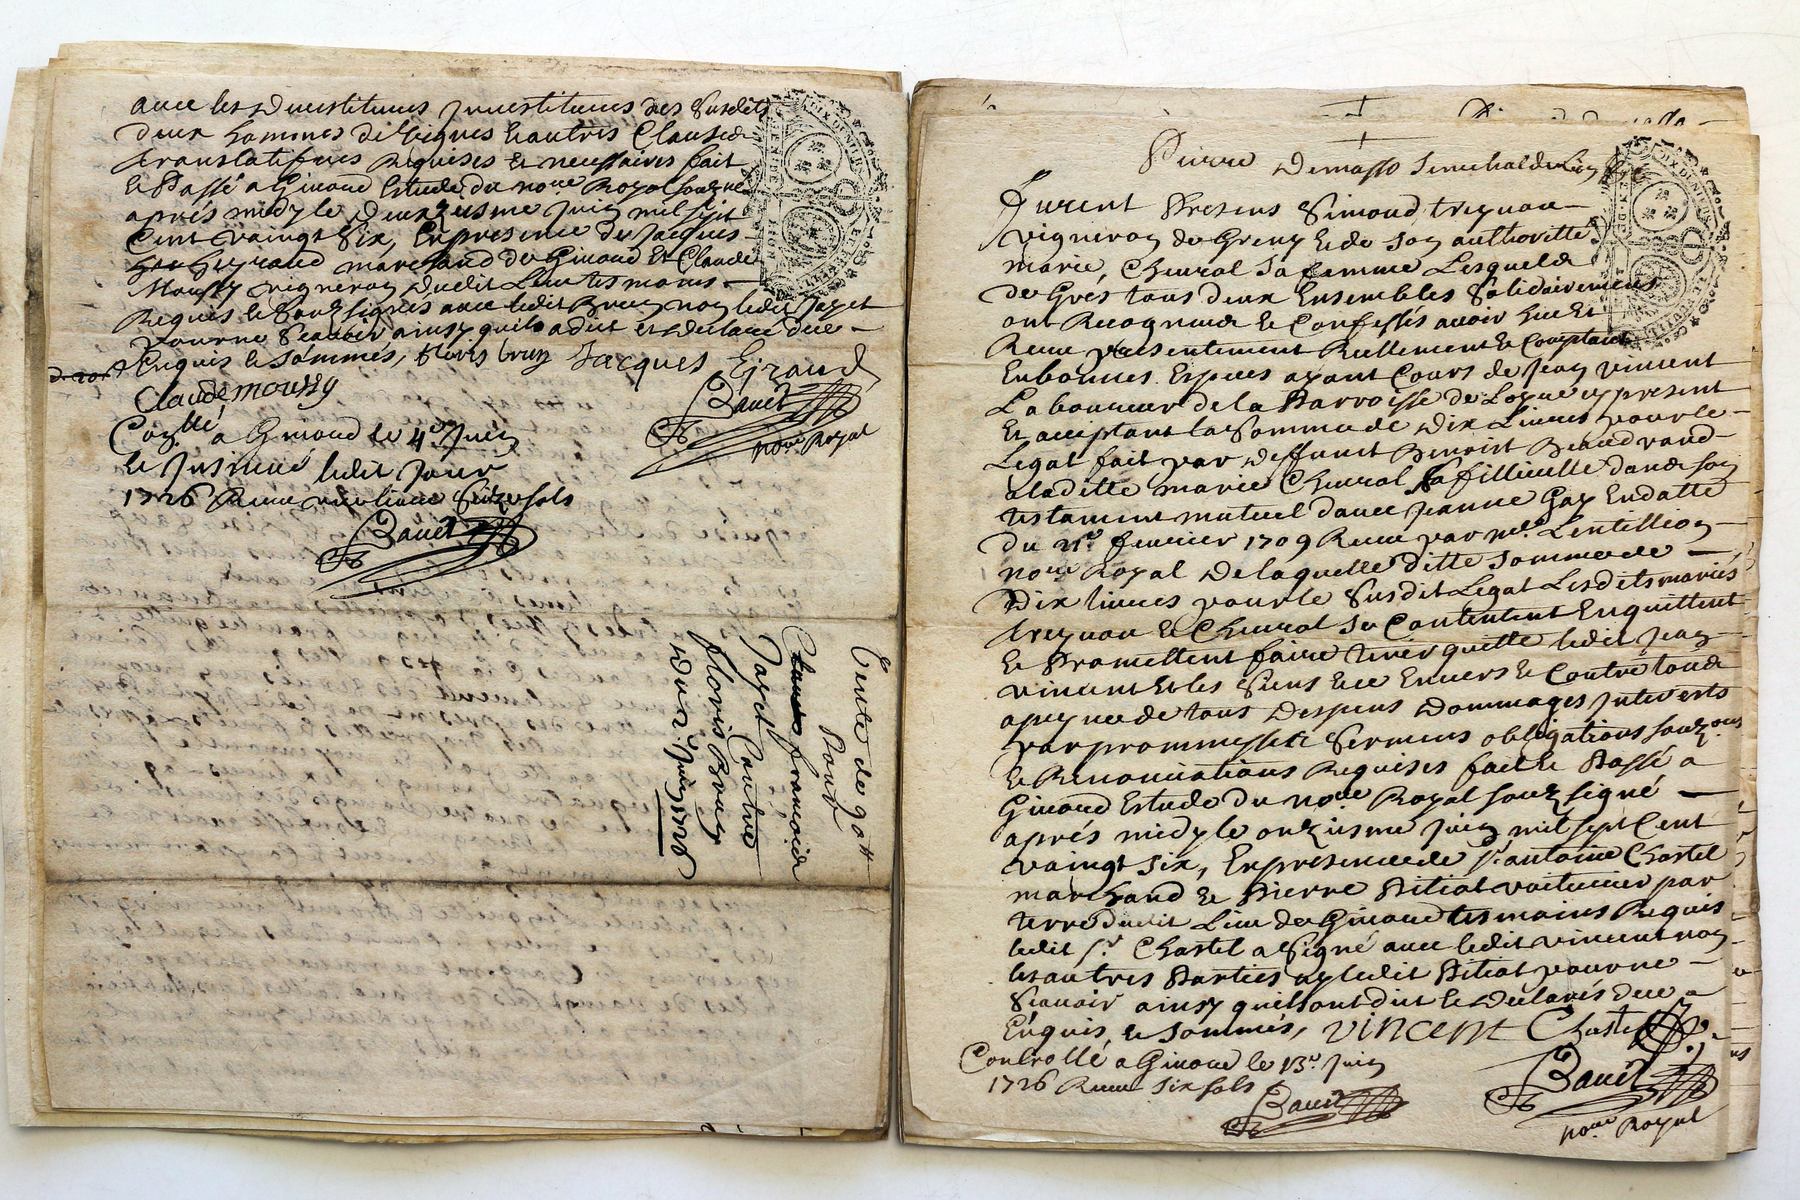 avec les Devestitures Jnvestitures des Susdits
deux hommes de vignes & autres Clauses
translatifves Requises et necessaires fait
et Passé a Givord Estude du no.re Royal soubzsigné
aprés midy le deuxziesme Juin mil sept
Cent vaingt Six, En presence de Jacques
Girand marchand de Givord et Claude
Moussy vigneron dudit Lieu tesmoins
Requis et Soubzsignés avec ledit Brun non ledit Jayet
pour ne Scavoir ainsy quil a dit et declaré dece
Requis et Sommés, floris brun Jacques Girand
Claude moussy
Banet
no.re Royal
a Givord le 4.e Juin
et Jnsinué ledit Jour
1726 Receu une livre Seize sols
Banet
Vente de 90 tt
Pour
françoise
Jayet Contre
floris Brun
du 2. Juin 1726
Pierre Demasso Senechal de Lion
Furent Presens Simond treynau
vigneron de Greny & de Son authoritté
marie Cheural Sa femme Lesquels
de Grés tous deux Ensembles Solidairement
ont Recogneus & Confessés avoir heu et
Receu presentement Reellement & Comptant
En bonnes Especes ayant Cours de Jean vincent
Laboureur de la Parroisse de Loyre cy present
Et acceptant la Somme de Dix Livres pour le
Legat fait par deffunt Benoist
a ladite marie Cheural Sa fillieulle dans son
testament mutuel d'avec Jeanne Gay En datte
du 21.e feuvrier 1709 Receu par m.e Lentillion
no.re Royal de laquelle ditte Somme de
Dix livres pour le Susdit Legat Lesdits mariés
treynau & Cheural Se Contentent En quittent
Et Promettent faire tenir quitte ledit Jean
vincent et les Siens Envers & Contre tous
a peyne de tous Despens Dommages Jnterests
par prommesses Sermens obligations
Et Renonciations Requises fait & Passé a
Givord Estude du no.re Royal soubzsigné
aprés midy le onziesme Juin mil sept Cent
vaingt six, En presence de s.r antoine Chastel
marchand & Pierre Pitiot voiturier par
terre dudit Lieu de Givord tesmoins Requis
ledit s.r Chastel a Signé avec ledit vincent non
les autres Parties ny ledit Pitiot pour ne
Scavoir ainsy quils ont dit & declarés dece
Enquis & sommés, vincent Chastel
Controllé a Givord le 13.e Juin
1726 Receu six sols
Banet
Banet
no.re Royal